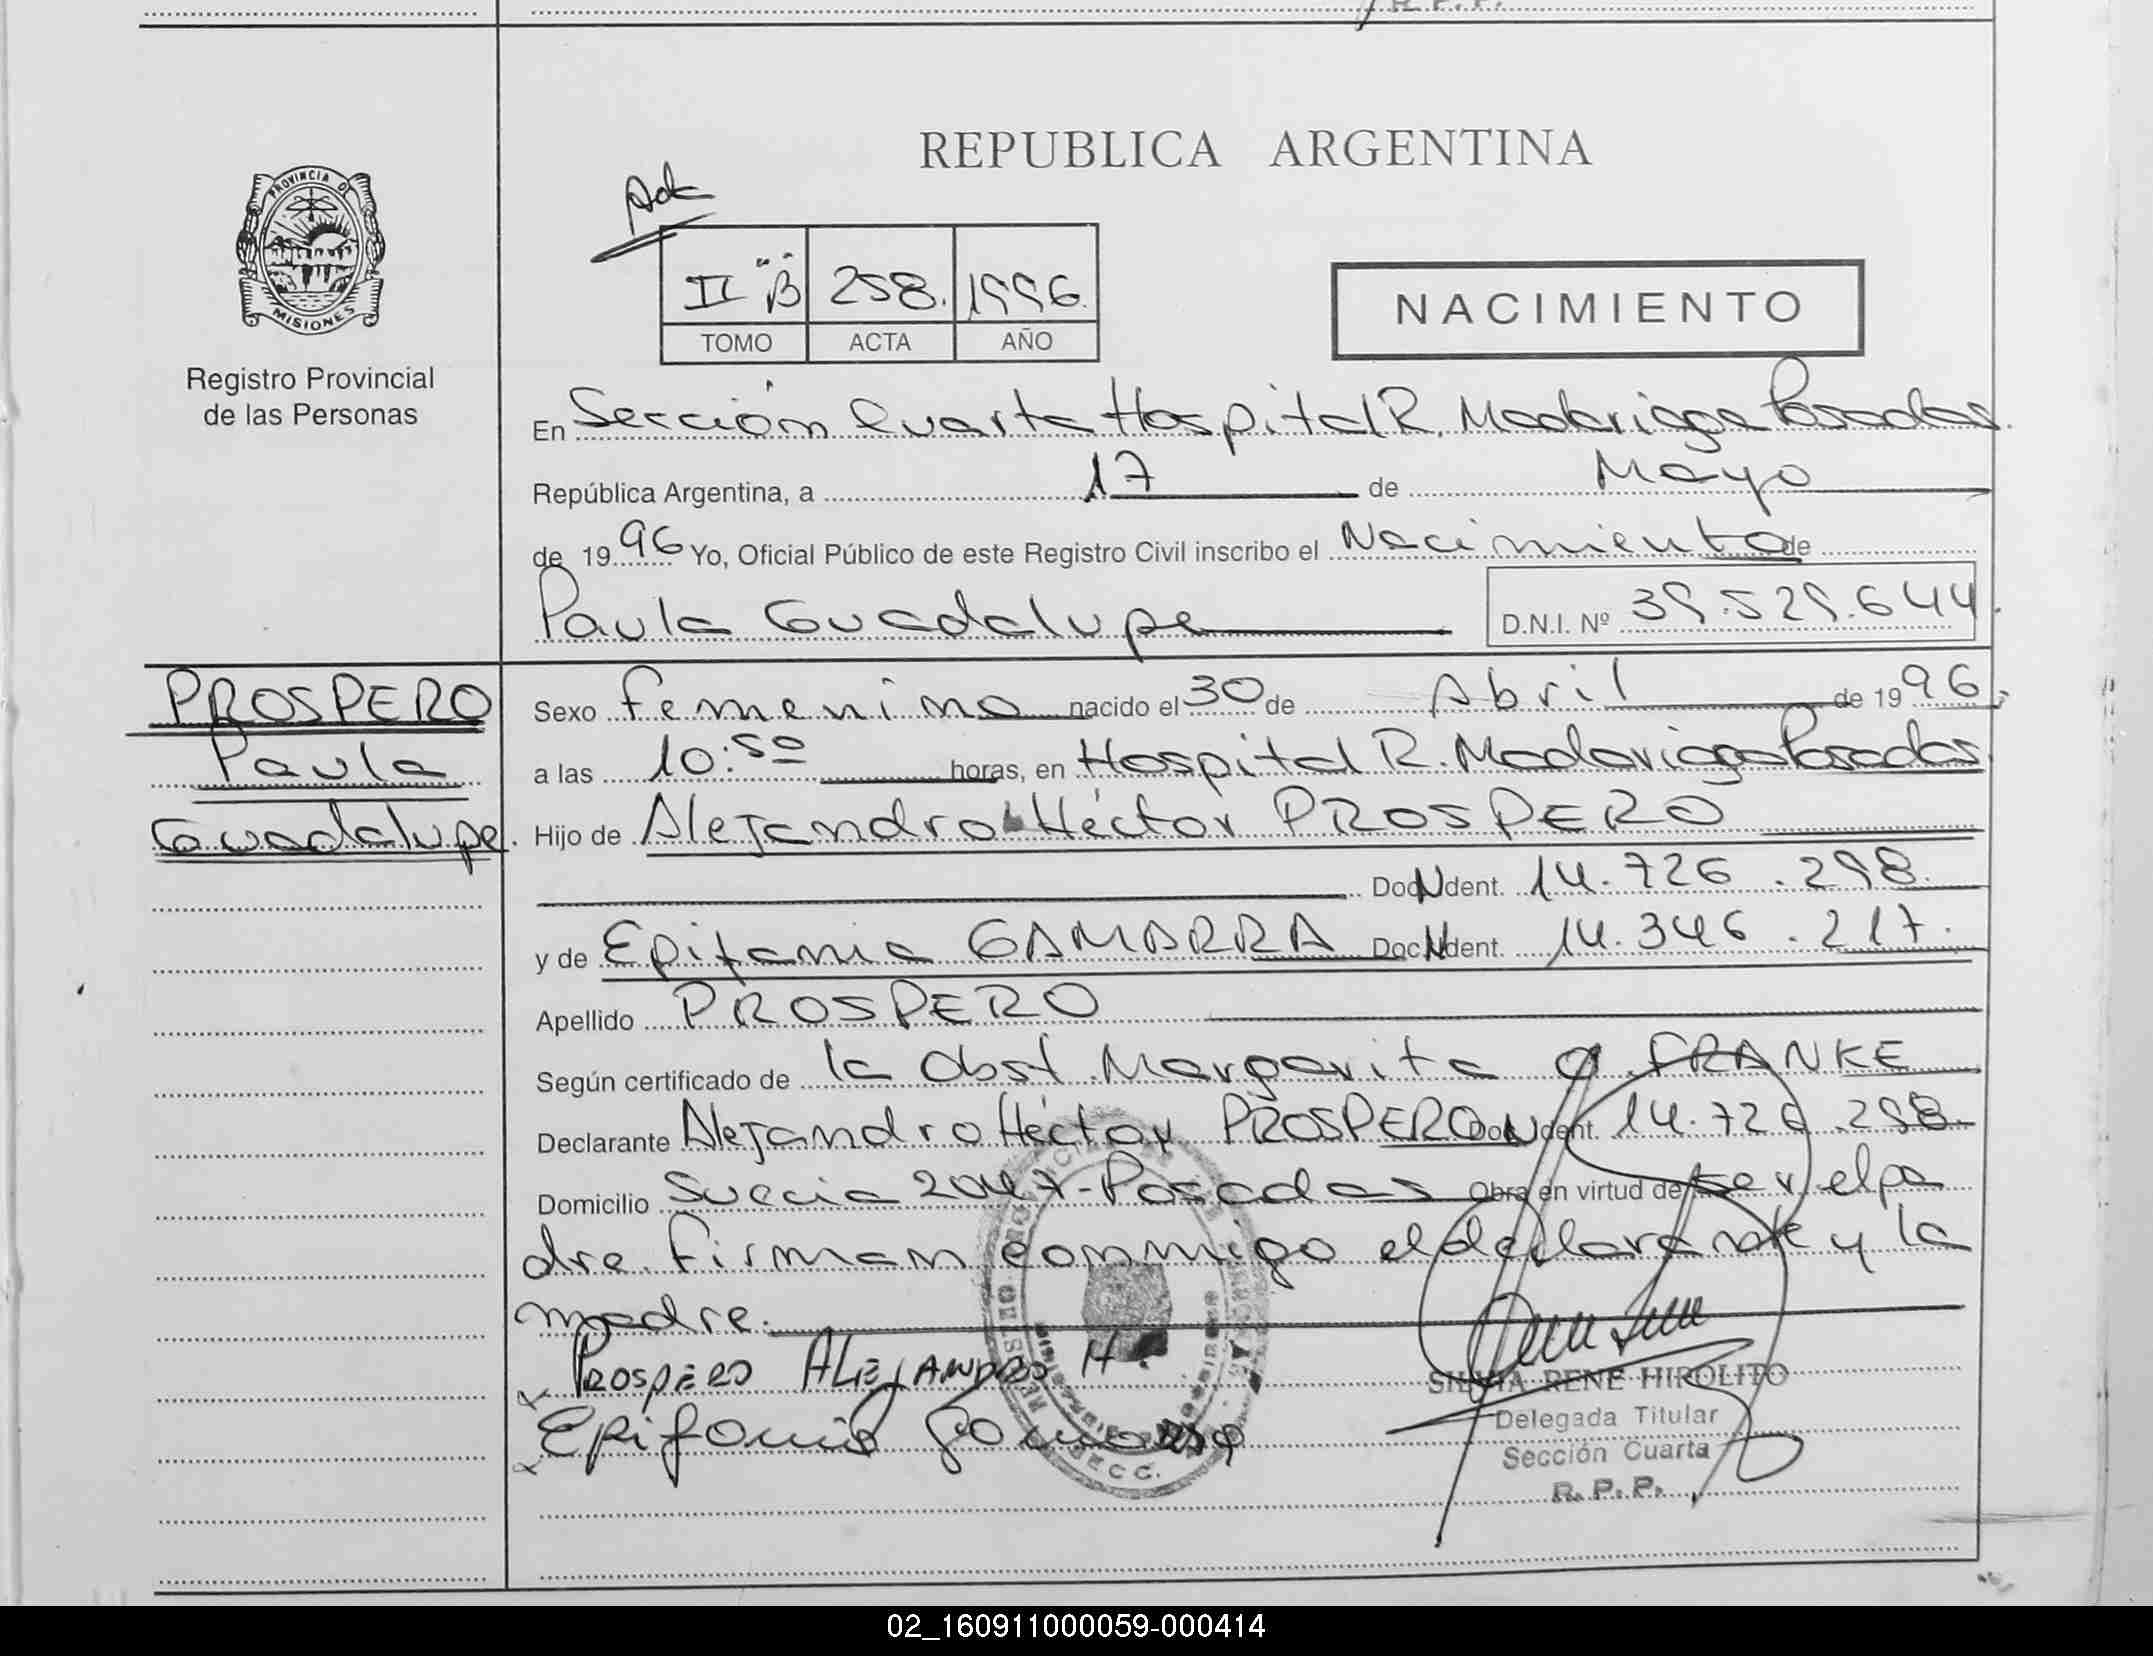 R.P.P.
REPUBLICA ARGENTINA
PROVINCIA DE
MISIONES
Registro Provincial
de las Personas
II "B" 258. 1996.
TOMO ACTA AÑO
NACIMIENTO
En Sección Cuarta Hospital R. Madariaga Posadas.
República Argentina, a 17 de Mayo
de 1996 Yo, Oficial Público de este Registro Civil inscribo el Nacimiento de
Paula Guadalupe D.N.I. Nº 39.529.644.
PROSPERO
Paula
Guadalupe.
Sexo Femenino nacido el 30 de Abril de 1996.
a las 10:50 horas, en Hospital R. Madariaga Posadas.
Hijo de Alejandro Héctor PROSPERO
Doc N Ident. 14.726.298.
y de Epifania GAMARRA Doc N Ident. 14.346.217.
Apellido PROSPERO
Según certificado de la Obst. Margarita FRANKE
Declarante Alejandro Héctor PROSPERO Doc N Ident. 14.726.298.
Domicilio Suecia 2047-Posadas Obra en virtud de ser el pa
dre. Firman conmigo el declarante y la
madre.
PROSPERO ALEJANDRO H.
Epifania Gamarra
SILVIA RENE HIPOLITO
Delegada Titular
Sección Cuarta
R.P.P.
02_160911000059-000414